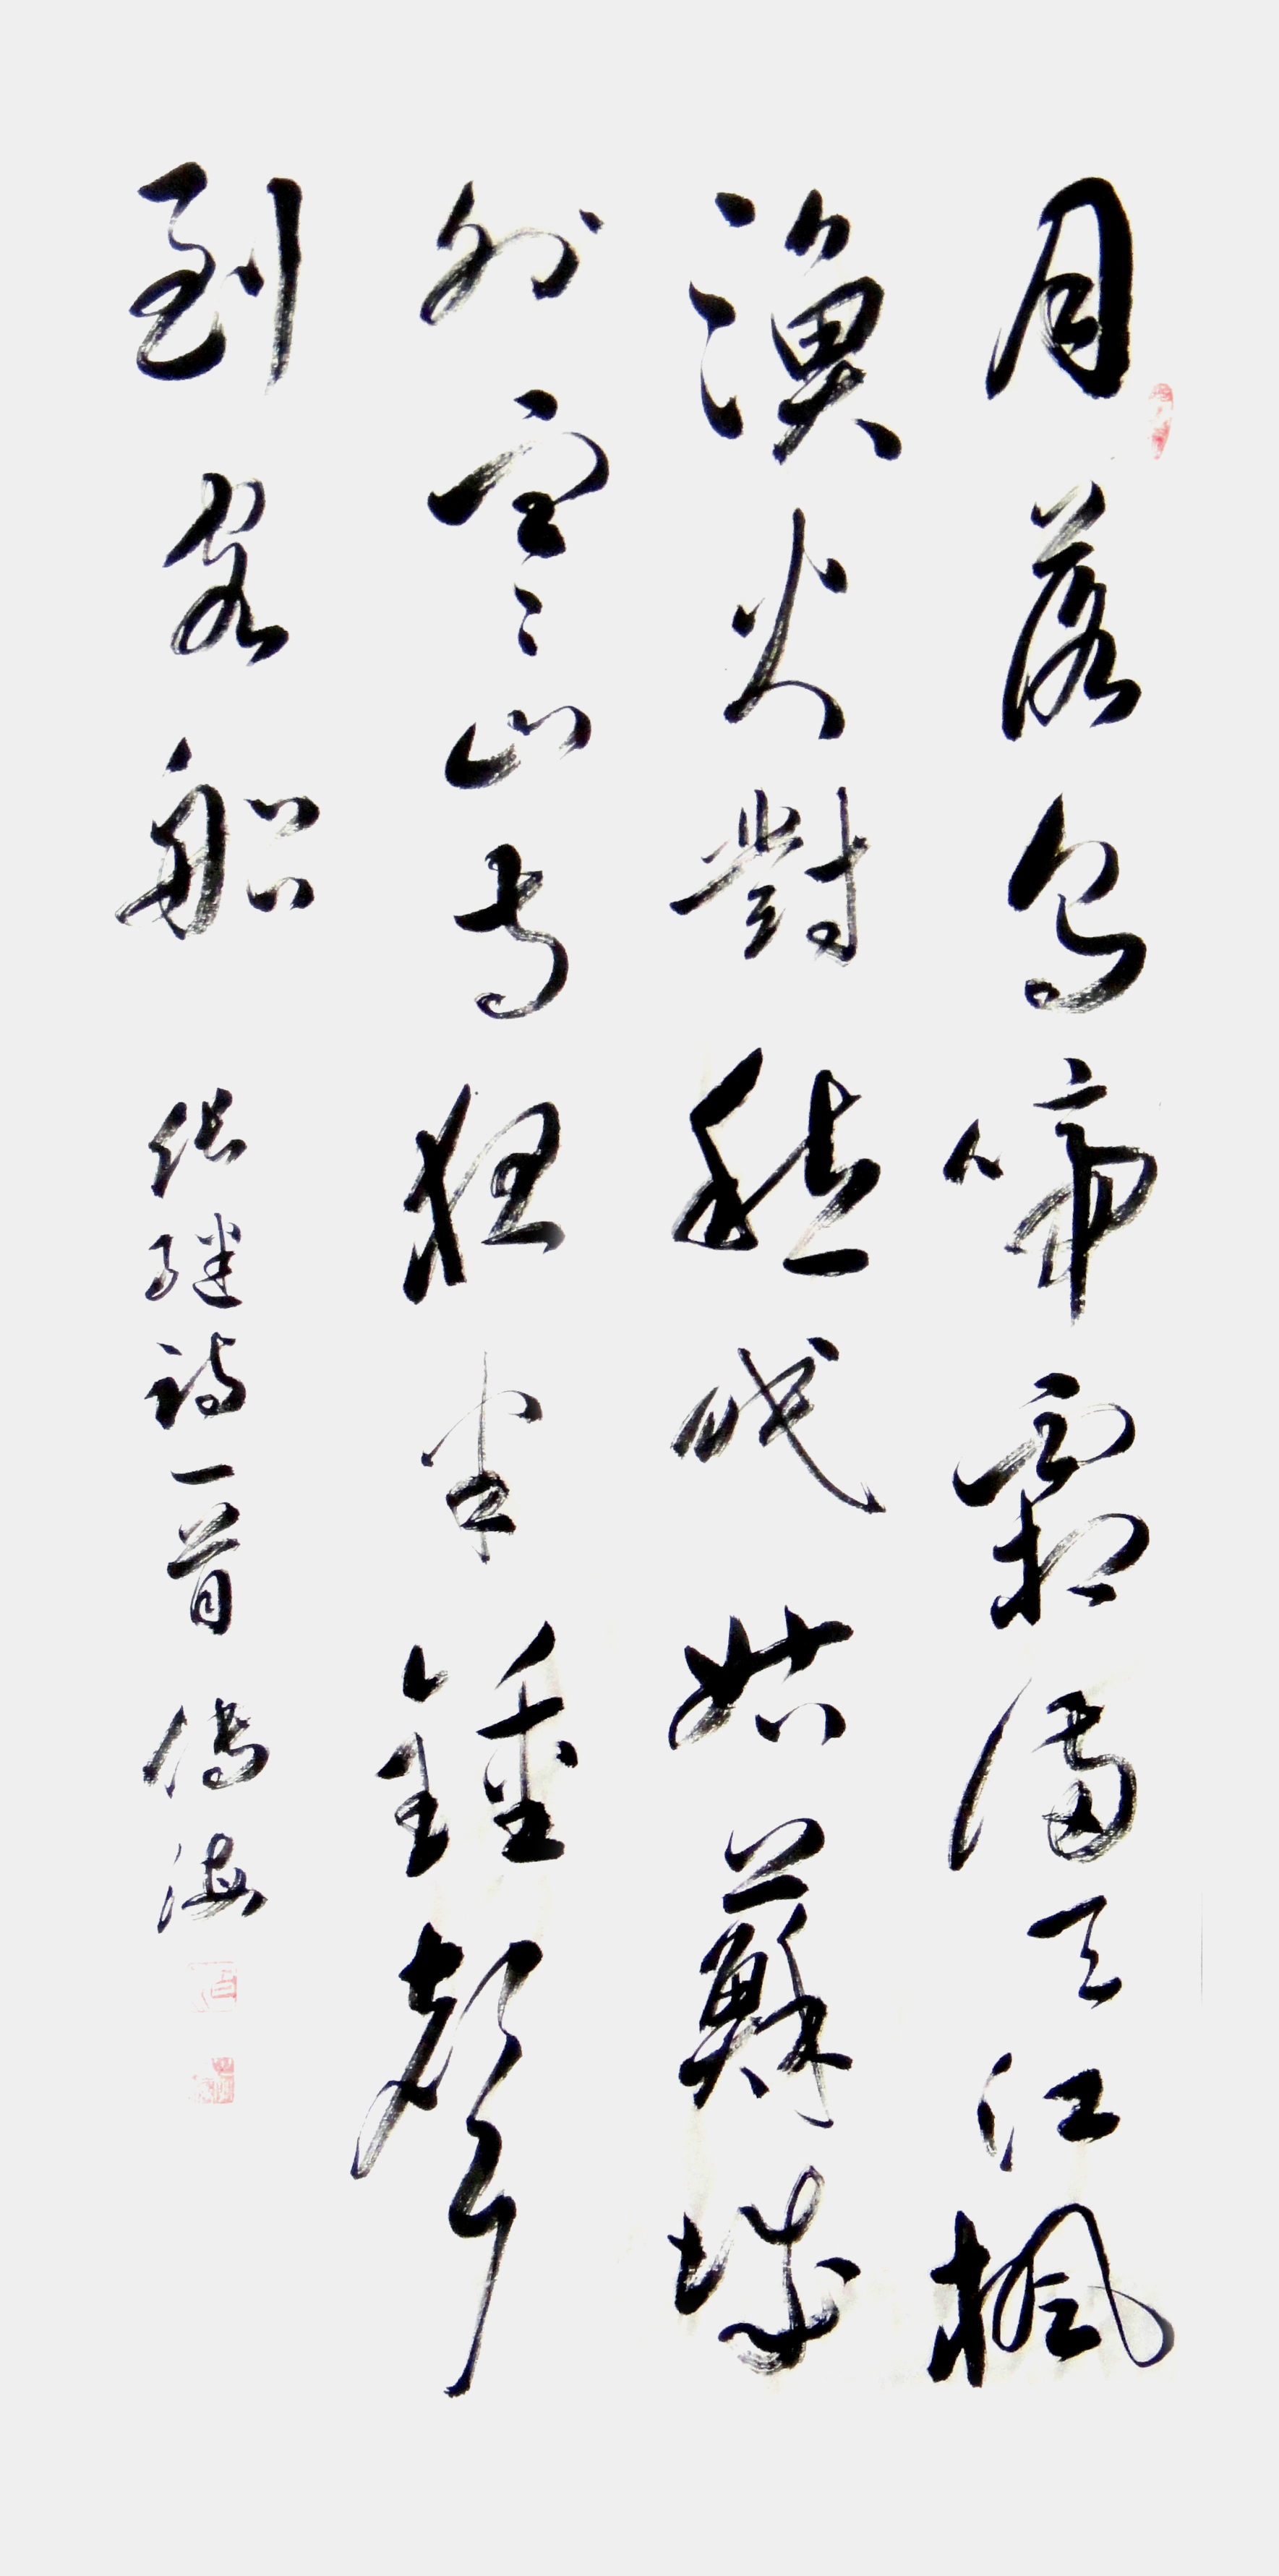 月落烏啼霜滿天江楓
漁火對愁眠姑蘇城
外寒山寺夜半鍾聲
到客船 張繼詩一首 海